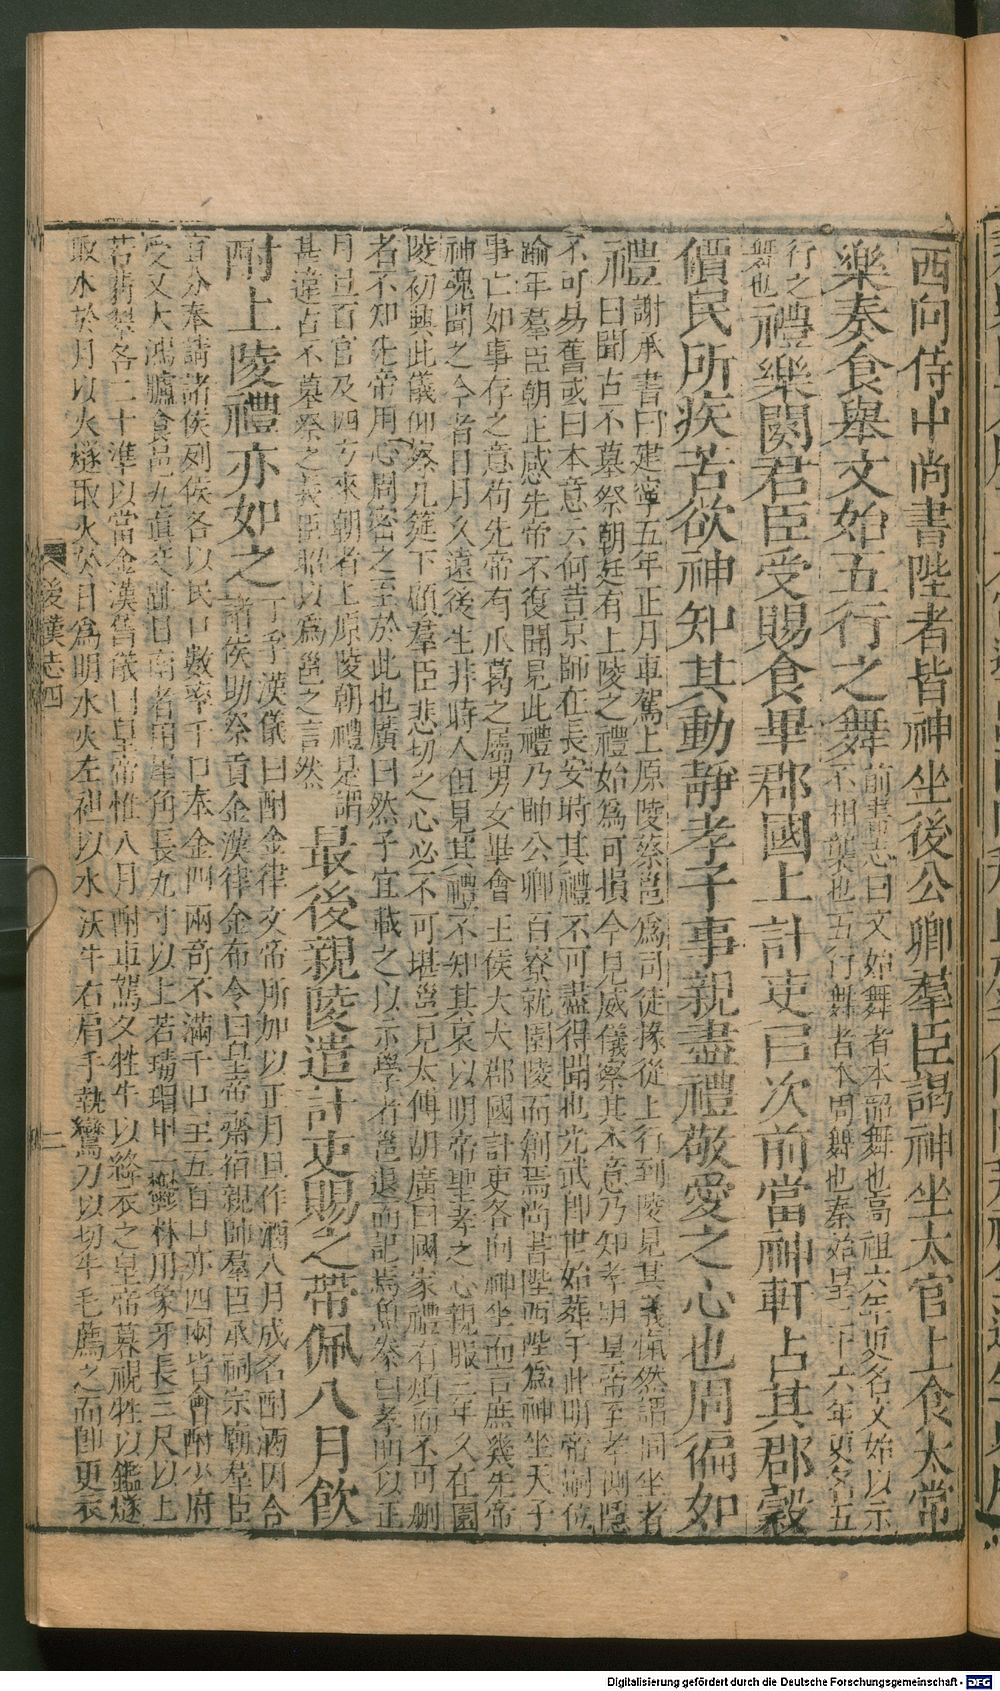 西向侍中尚書陛者皆神坐後公卿羣臣謁神坐太官上食太常
樂奏食舉文始五行之舞
前書志曰文始舞者本韶舞也高祖六年更名文始以示
不相襲也五行舞者本周舞也秦始皇二十六年更名五
行之
舞也
禮樂闋君臣受賜食畢郡國上計吏以次前當神軒占其郡穀
價民所疾苦欲神知其動靜孝子事親盡禮敬愛之心也周徧如
禮
謝承書曰建寧五年正月車駕上原陵蔡邕爲司徒掾從上行到陵見其儀愾然謂同坐者
曰聞古不墓祭朝廷有上陵之禮始爲可損今見威儀察其本意乃知孝明皇帝至孝惻隱
不可易舊或曰本意云何昔京師在長安時其禮不可盡得聞也光武卽世始葬于此明帝嗣位
踰年羣臣朝正感先帝不復聞見此禮乃帥公卿百寮就園陵而創焉尚書陛西陛爲神坐天子
事亡如事存之意苟先帝有瓜葛之屬男女畢會王侯大夫郡國計吏各向神坐而言庶幾先帝
神魂聞之今者日月久遠後生非時人但見其禮不知其哀以明帝聖孝之心親服三年久在園
陵初興此儀仰察几筵下顧羣臣悲切之心必不可堪邕見太傅胡廣曰國家禮有煩而不可刪
者不知先帝用心周密之至於此也廣曰然子宜載之以示學者邕退而記焉魚豢曰孝明以正
月旦百官及四方來朝者上原陵朝禮是謂
甚違古不墓祭之義臣昭以爲邕之言然
最後親陵遣計吏賜之帶佩八月飲
酎上陵禮亦如之
丁孚漢儀曰酎金律文帝所加以正月旦作酒八月成名酎酒因合
諸侯助祭貢金漢律金布令曰皇帝齋宿親帥羣臣承祠宗廟羣臣
宜分奉請諸侯列侯各以民口數率千口奉金四兩奇不滿千口至五百口亦四兩皆會酎少府
受又大鴻臚食邑九眞交趾日南者用犀角長九寸以上若瑇瑁甲一鬱林用象牙長三尺以上
若翡翠各二十準以當金漢舊儀曰皇帝惟八月酎車駕夕牲牛以絳衣之皇帝暮視牲以鑑燧
取水於月以火燧取火於日爲明水火左袒以水沃牛右肩手執鸞刀以切牛毛薦之而卽更衣
後漢志四
二
Digitalisierung gefördert durch die Deutsche Forschungsgemeinschaft - DFG